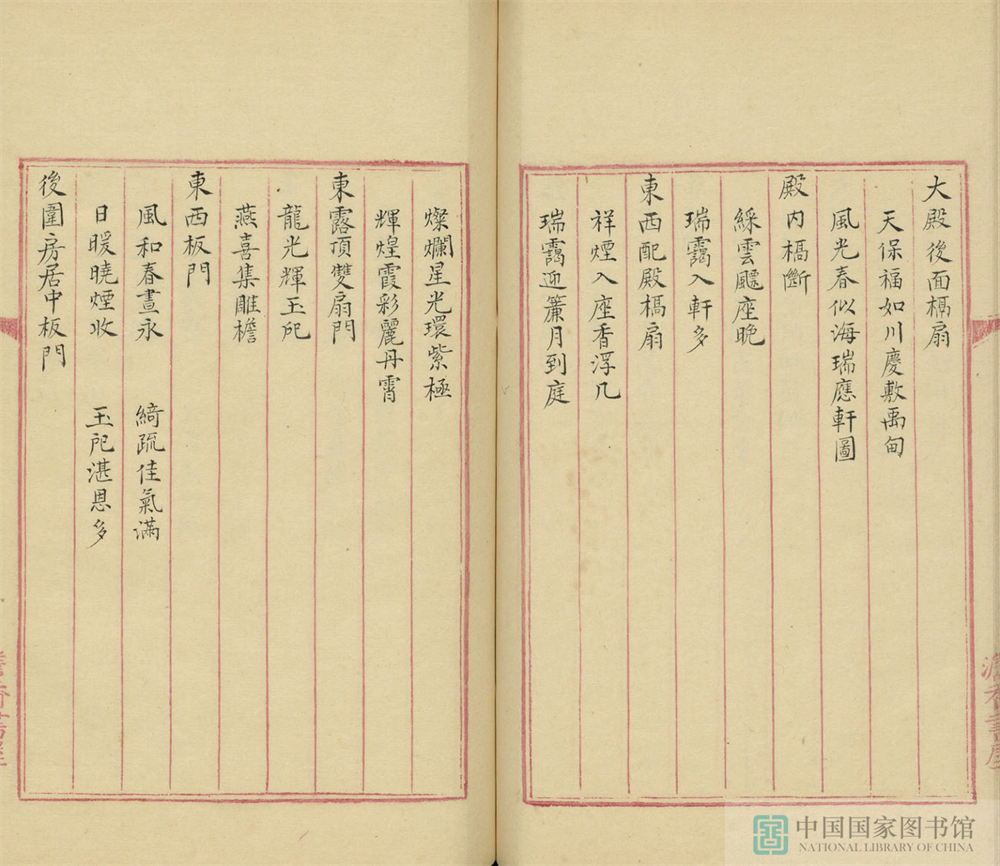 大殿後面槅扇
天保福如川慶敷禹甸
風光春似海瑞應軒圖
殿内槅斷
綵雲飃座晚
瑞靄入軒多
東西配殿槅扇
祥煙入座香浮几
瑞靄迎簾月到庭
燦爛星光環紫極
輝煌霞彩麗丹霄
東露頂雙扇門
龍光輝玉戺
燕喜集雕檐
東西板門
風和春晝永 綺疏佳氣滿
日暖曉煙收 玉戺湛恩多
後圍房居中板門
中国国家图书馆
NATIONAL LIBRARY OF CHINA